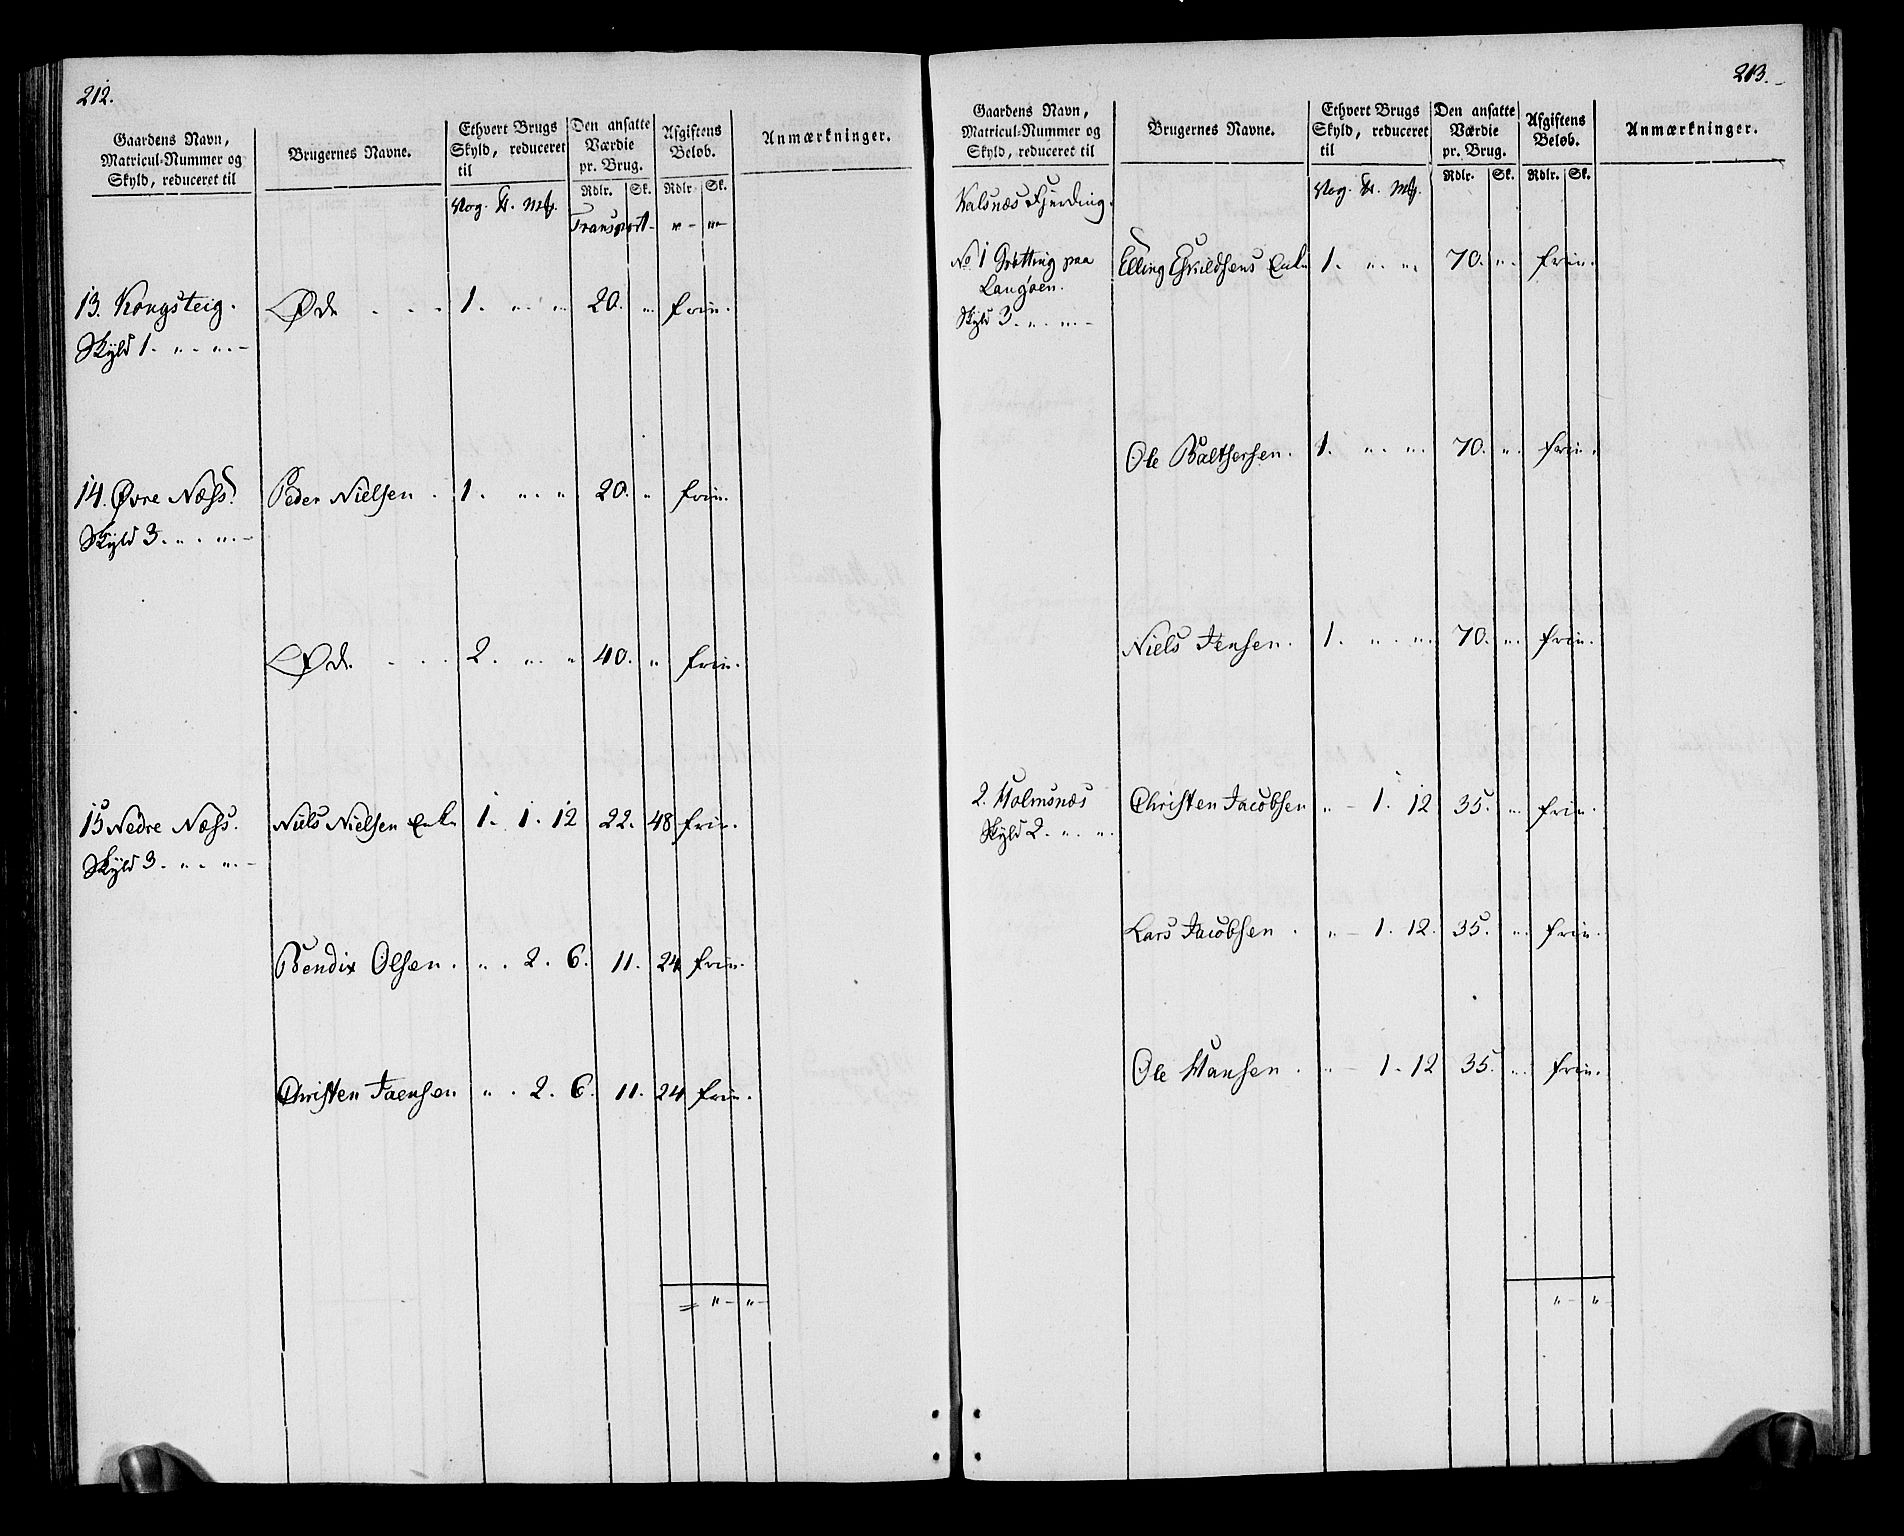 212.
Gaardens Navn, Matricul-Nummer og Skyld, reduceret til
Brugernes Navne.
Ethvert Brugs Skyld, reduceret til
Den ansatte Værdie pr. Brug.
Afgiftens Beløb.
Anmærkninger.
Rdlr. Sk. Rdlr. Sk.
Vog. ℔. Mk.
Transport - " - "
13. Kongsteig. Øde . . . 1. " . " 20. " frie.
Skyld 1. " . " . -
14. Øvre Næss. Peder Nielsen . 1. " . " 20. " frie.
Skyld 3. " . " . -
Øde . . . 2. " . " 40. " frie.
15 Nedre Næss. Niels Nielsen Enke 1. 1. 12 22. 48 frie.
Skyld 3. " . " . -
Bendix Olsen . " . 2. 6. 11. 24 frie.
Christen Jaensen " . 2. 6. 11. 24 frie.
= " - " -
213.
Gaardens Navn, Matricul-Nummer og Skyld, reduceret til
Brugernes Navne.
Ethvert Brugs Skyld, reduceret til
Den ansatte Værdie pr. Brug.
Afgiftens Beløb.
Anmærkninger.
Rdlr. Sk. Rdlr. Sk.
Vog. ℔. Mk.
Kalsnæs Fjerding.
No 1 Grøtting paa Elling Enke 1. " . " 70. " frie.
Langøen.
Skyld 3. " . " . -
Ole Balthersen . 1. " . " 70. " frie.
Niels Jensen . 1. " . " 70. " frie.
2. Holmsnæs Christen Jacobsen " - 1. 12 35. " frie.
Skyld 2. " . " .
Lars Jacobsen . " - 1. 12. 35. " frie.
Ole Hansen . " - 1. 12 35. " frie.
" - " -